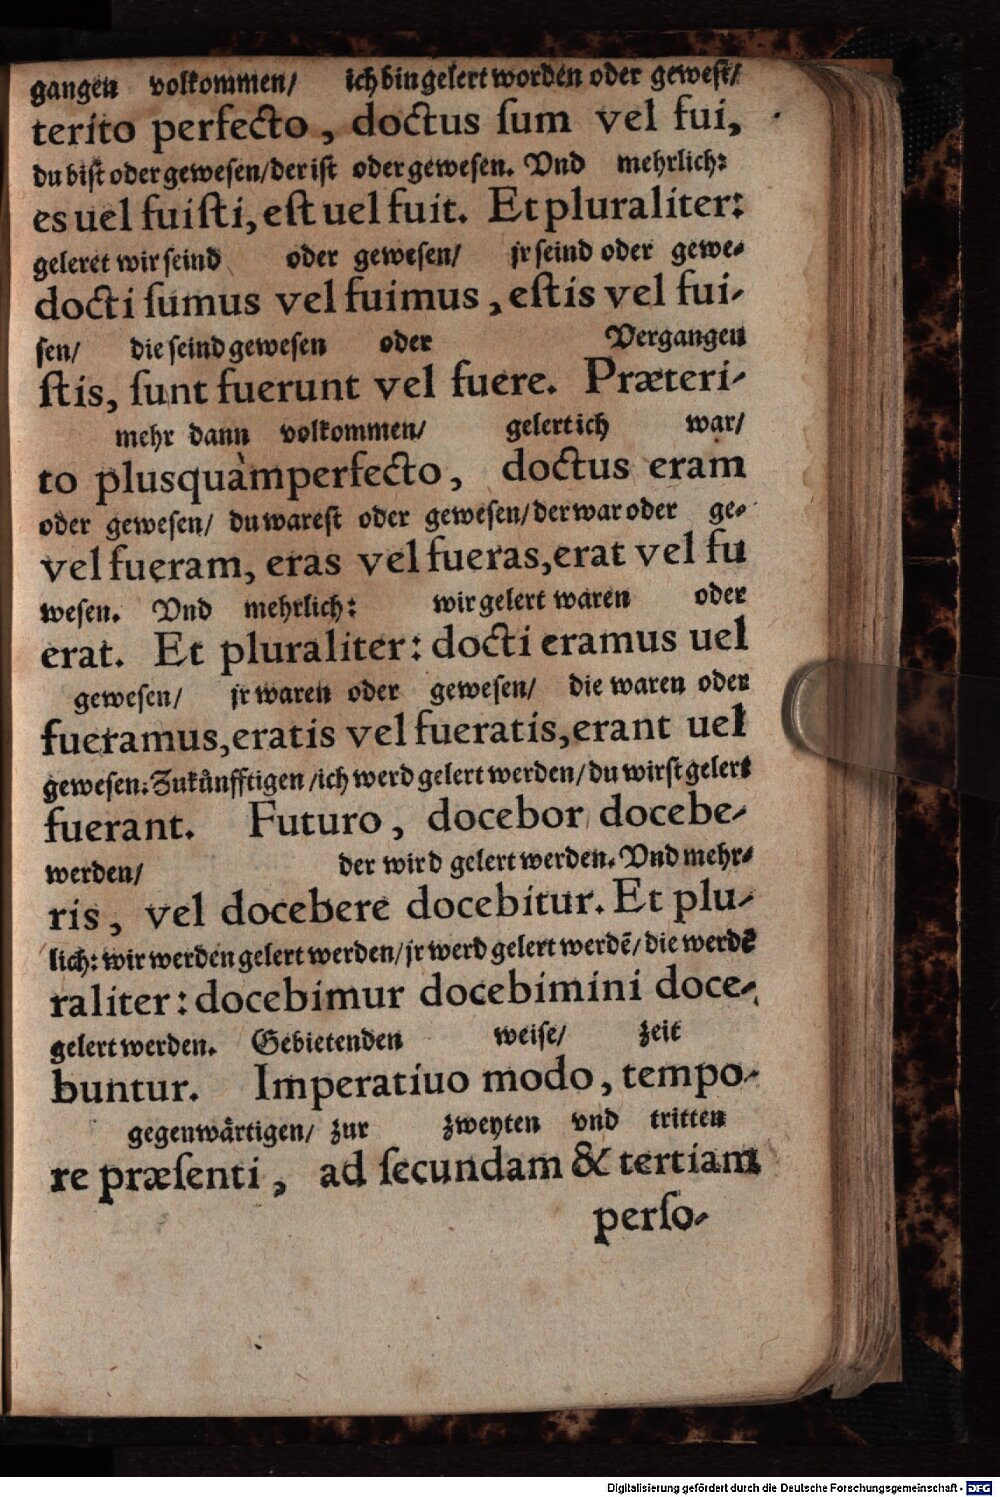 gangen volkommen/ ich bin gelert worden oder gewest/
terito perfecto, doctus ſum vel fui,
du bist oder gewesen/der ist oder gewesen. Vnd mehrlich:
es uel fuiſti, eſt uel fuit. Et pluraliter:
geleret wir seind oder gewesen/ jr seind oder gewe-
docti ſumus vel fuimus, eſtis vel fui-
sen/ die seind gewesen oder Vergangen
ſtis, ſunt fuerunt vel fuere. Præteri-
mehr dann volkommen/ gelert ich war/
to plusquàmperfecto, doctus eram
oder gewesen/ du warest oder gewesen/der war oder ge-
vel fueram, eras vel fueras, erat vel fu
wesen. Vnd mehrlich: wir gelert waren oder
erat. Et pluraliter: docti eramus uel
gewesen/ jr waren oder gewesen/ die waren oder
fueramus, eratis vel fueratis, erant uel
gewesen: Zukůnfftigen/ich werd gelert werden/du wirst gelert
fuerant. Futuro, docebor docebe-
werden/ der wird gelert werden. Vnd mehr-
ris, vel docebere docebitur. Et plu-
lich: wir werden gelert werden/jr werd gelert werdẽ/die werdẽ
raliter: docebimur docebimini doce-
gelert werden. Gebietenden weise/ zeit
buntur. Imperatiuo modo, tempo-
gegenwårtigen/ zur zweyten vnd tritten
re præſenti, ad ſecundam & tertiam
perſo-
Digitalisierung gefördert durch die Deutsche Forschungsgemeinschaft - DFG